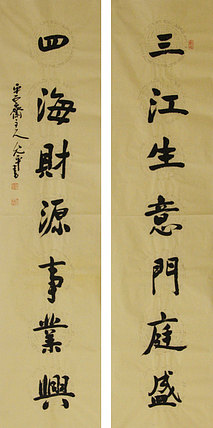 三江生意門庭盛
四海財源事業興